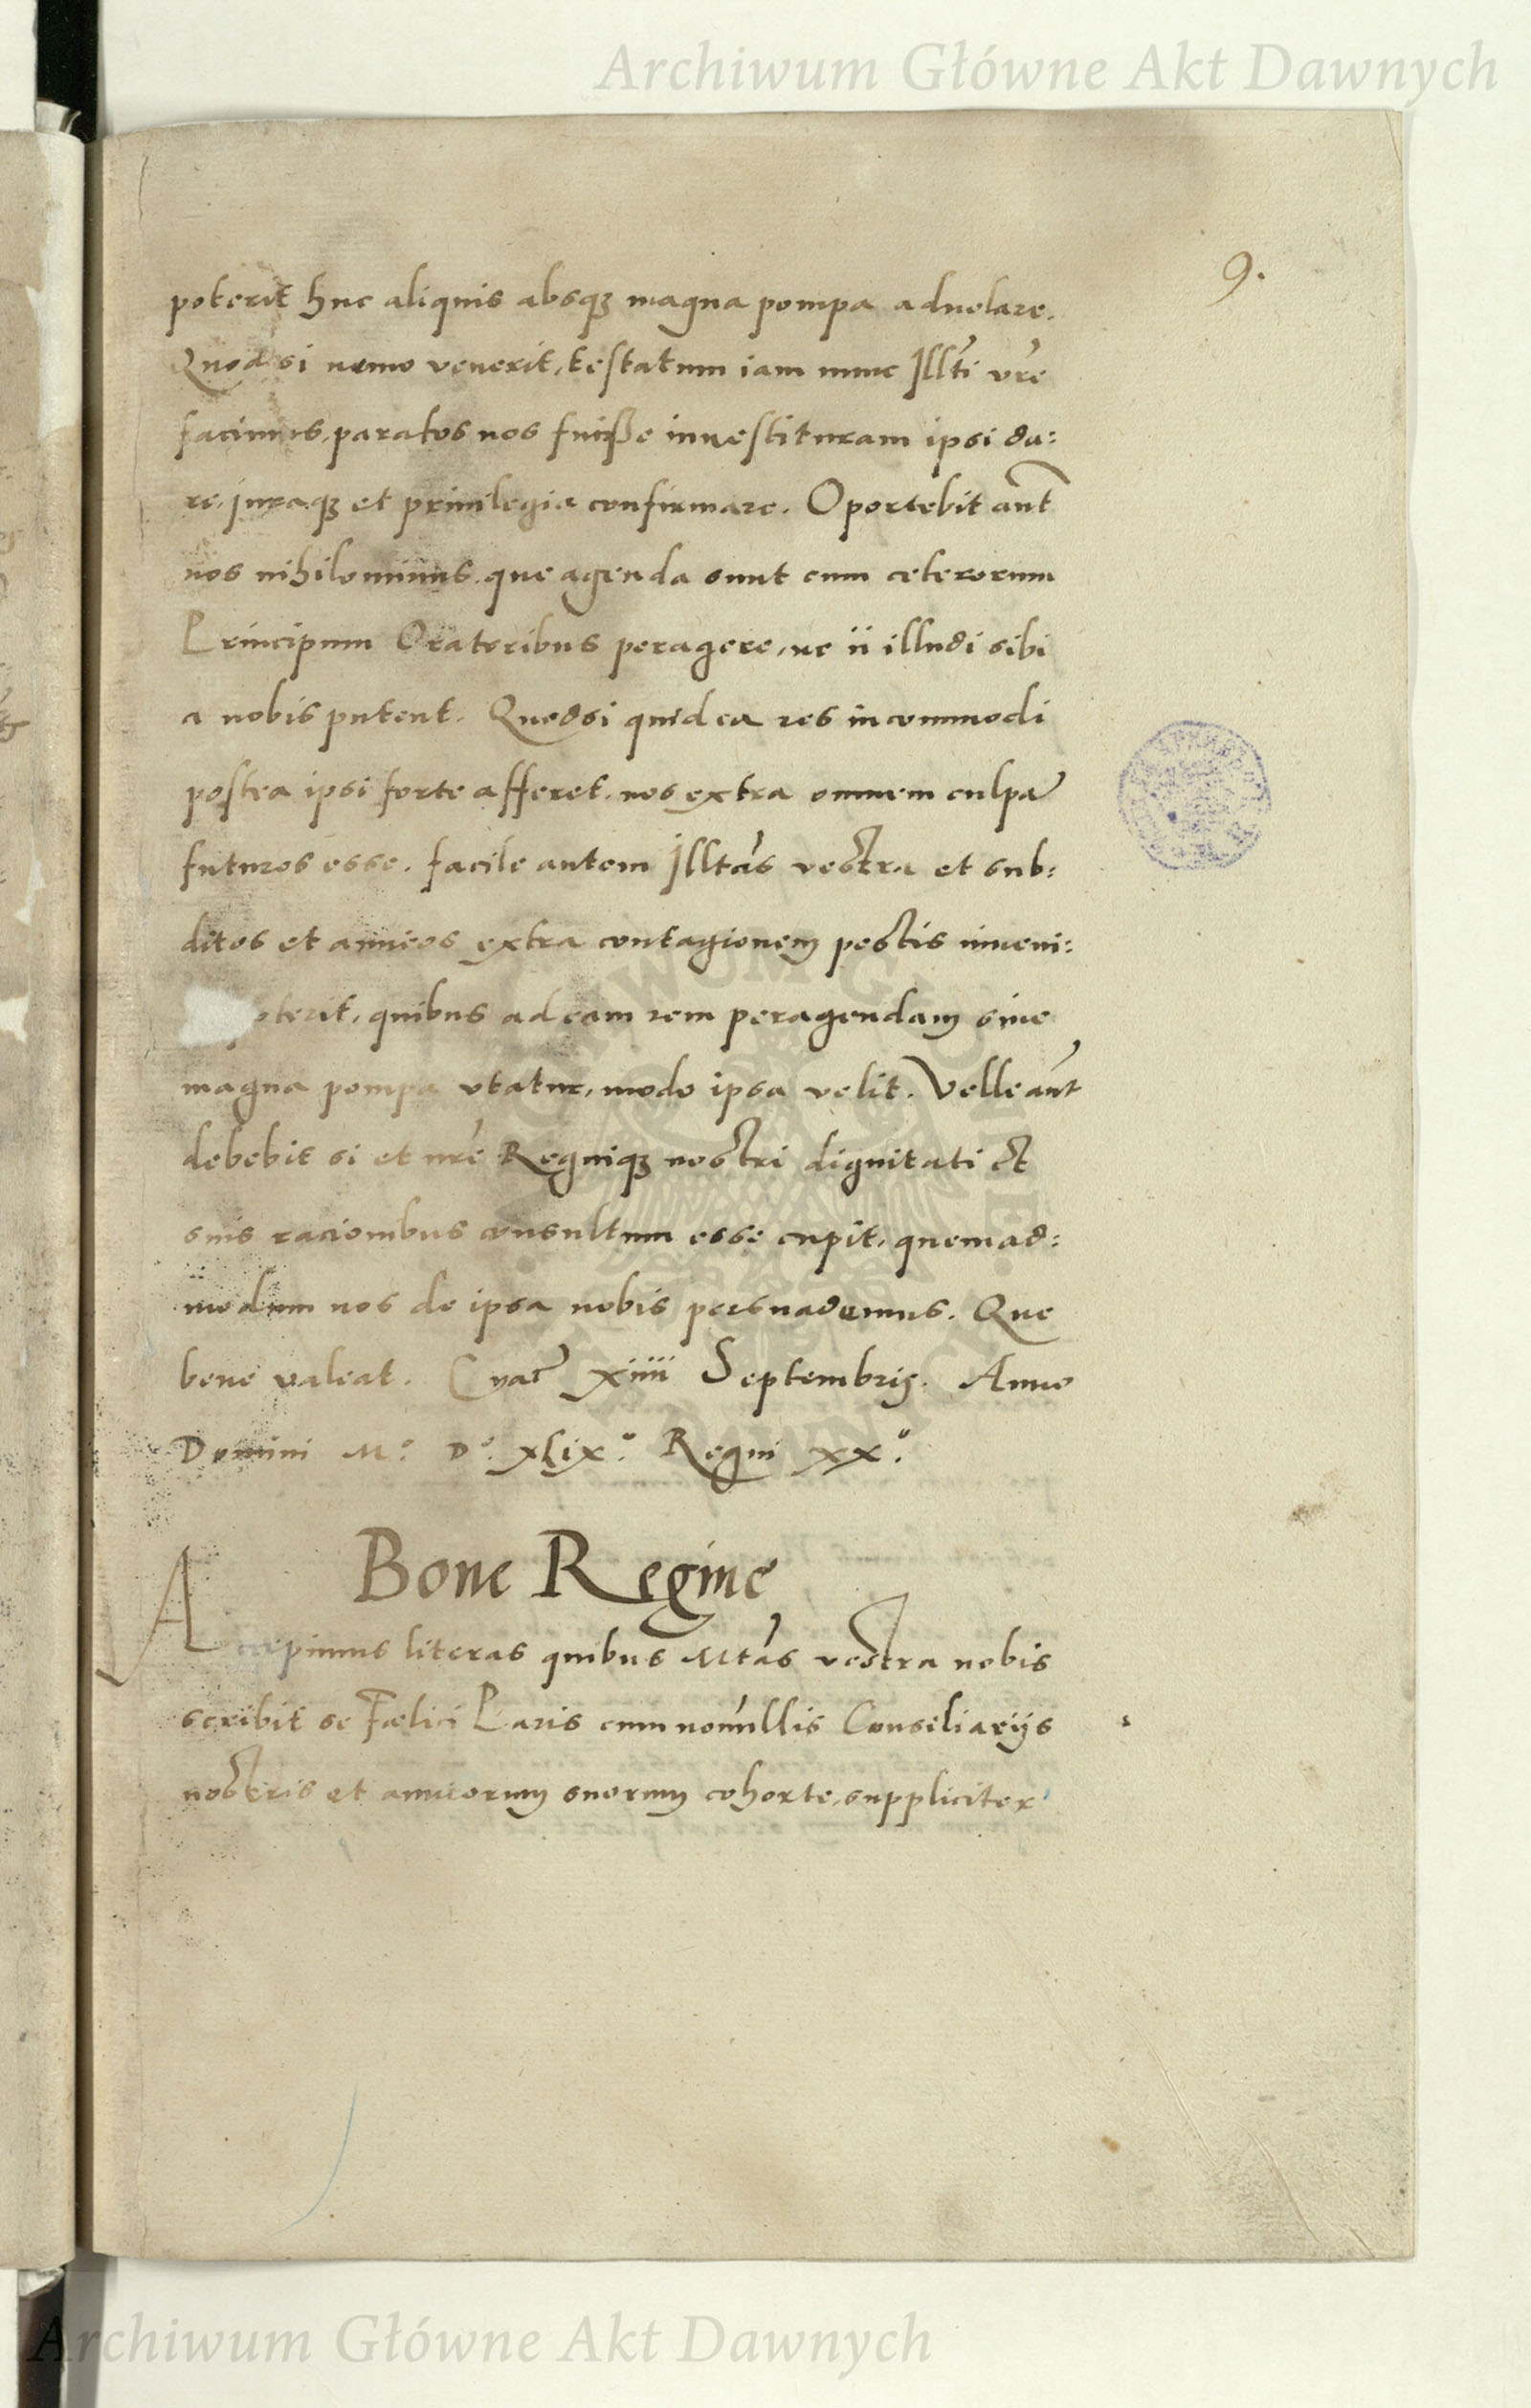 Archiwum Główne Akt Dawnych
9.
poterit huc aliquis absqꝫ magna pompa aduolare.
Quodsi nemo venerit, testatum iam nunc Illti vre
facimus, paratos nos fuisse inuestituram ipsi da:
re, juraqꝫ et priuilegia confirmare. Oportebit aut
nos nihilominus, que agenda sunt cum ceterorum
Principum Oratoribus peragere, ne ii illudi sibi
a nobis putent. Quodsi quid ea res incommodi
postea ipsi forte afferet, nos extra omnem culpa
futuros esse. facile autem Illtas vestra et sub:
ditos et amicos extra contagionem pestis inueni:
oterit, quibus ad eam rem peragendam sine
magna pompa vtatur, modo ipsa velit. Velle aut
debebit si et nre Regniqꝫ nostri dignitati et
suis racionibus consultum esse cupit, quemad:
modum nos de ipsa nobis persuademus. Que
bene valeat. Crac xiiii Septembris. Anno
Domini M.º D.º xlix.º Regni xx.º
Bone Regine
Accepimus literas quibus Mtas vestra nobis
scribit se Fælici Paris cum nonnullis Consiliarijs
nostris et amicorum suorum cohorte, suppliciter
Archiwum Główne Akt Dawnych